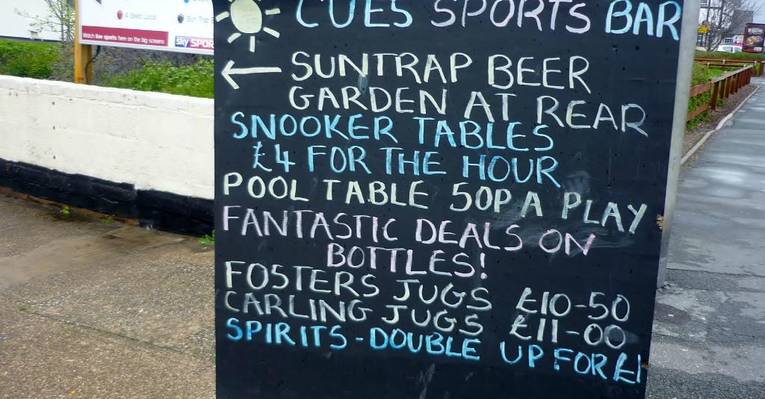 CUES SPORTS BAR
SUNTRAP BEER
GARDEN AT REAR
SNOOKER TABLES
£4 FOR THE HOUR
POOL TABLE 50P A PLAY
FANTASTIC DEALS ON
BOTTLES!
FOSTERS JUGS £10-50
CARLING JUGS £11-00
SPIRITS - DOUBLE UP FOR £1
Watch live sports here on the big screens
sky SPORTS